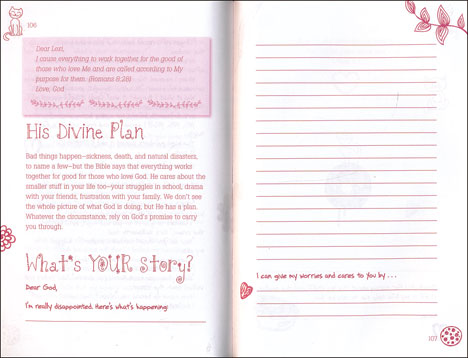 106
Dear Lexi,
I cause everything to work together for the good of
those who love Me and are called according to My
purpose for them. (Romans 8:28)
Love, God
His Divine Plan
Bad things happen—sickness, death, and natural disasters,
to name a few—but the Bible says that everything works
together for good for those who love God. He cares about the
smaller stuff in your life too—your struggles in school, drama
with your friends, frustration with your family. We don't see
the whole picture of what God is doing, but He has a plan.
Whatever the circumstance, rely on God's promise to carry
you through.
What's YOUR Story?
Dear God,
I'm really disappointed. Here's what's happening:
I can give my worries and cares to You by . . .
107